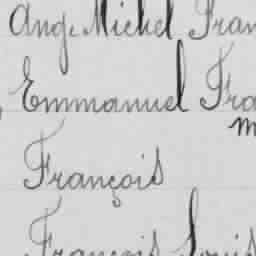 Ange Michel Fran
Emmanuel Fra
m
François
François Louis